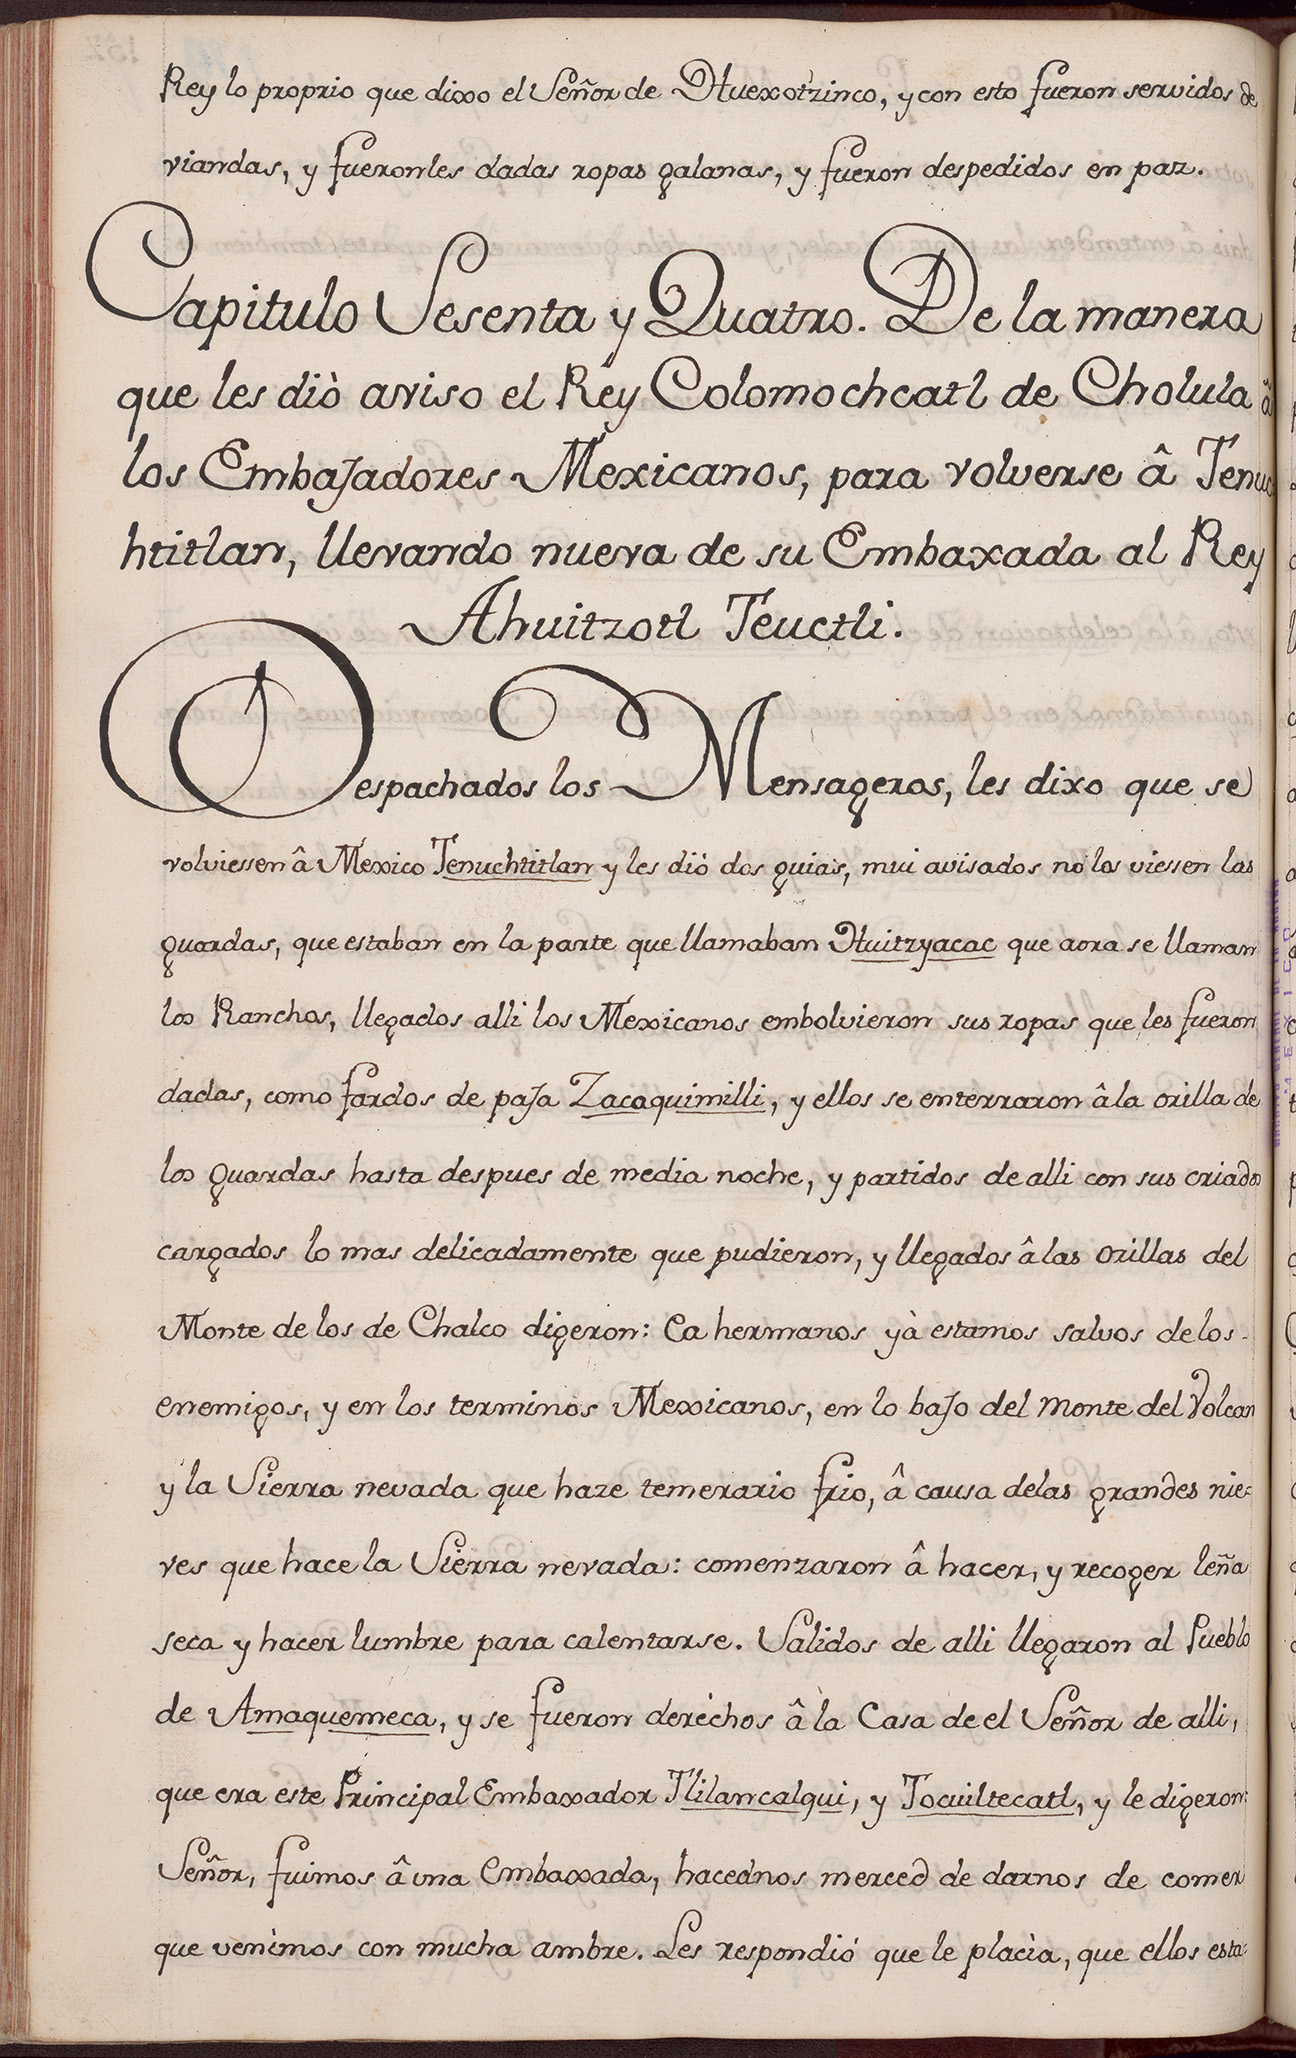 Rey lo proprio que dixo el Señor de Huexotzinco, y con esto fueron servidos de
viandas, y fueronles dadas ropas galanas, y fueron despedidos en paz.
Capitulo Sesenta y Quatro. De la manera
que les diò aviso el Rey Colomochcatl de Cholula â
los Embajadores Mexicanos, para volverse â Tenuc
htitlan, llevando nueva de su Embaxada al Rey
Ahuitzotl Teuctli.
Despachados los Mensageros, les dixo que se
volviessen â Mexico Tenuchtitlan y les diò dos guias, mui avisados no los viessen las
guardas, que estaban en la parte que llamaban Huitzyacac que aora se llaman
los Ranchos, llegados alli los Mexicanos embolvieron sus ropas que les fueron
dadas, como fardos de paja Zacaquimilli, y ellos se enterraron â la orilla de
los guardas hasta despues de media noche, y partidos de alli con sus criados
cargados lo mas delicadamente que pudieron, y llegados â las orillas del
Monte de los de Chalco digeron: Ea hermanos yà estamos salvos de los
enemigos, y en los terminos Mexicanos, en lo bajo del monte del Volcan
y la Sierra nevada que haze temerario frio, â causa delas grandes nie=
ves que hace la Sierra nevada: comenzaron â hacer, y recoger leña
seca y hacer lumbre para calentarse. Salidos de alli llegaron al Pueblo
de Amaquemeca, y se fueron derechos â la Casa de el Señor de alli,
que era este Principal Embaxador Tlilancalqui, y Tocuiltecatl, y le digeron:
Señor, fuimos â una Embaxada, hacednos merced de darnos de comer
que venimos con mucha ambre. Les respondió que le placìa, que ellos esta=